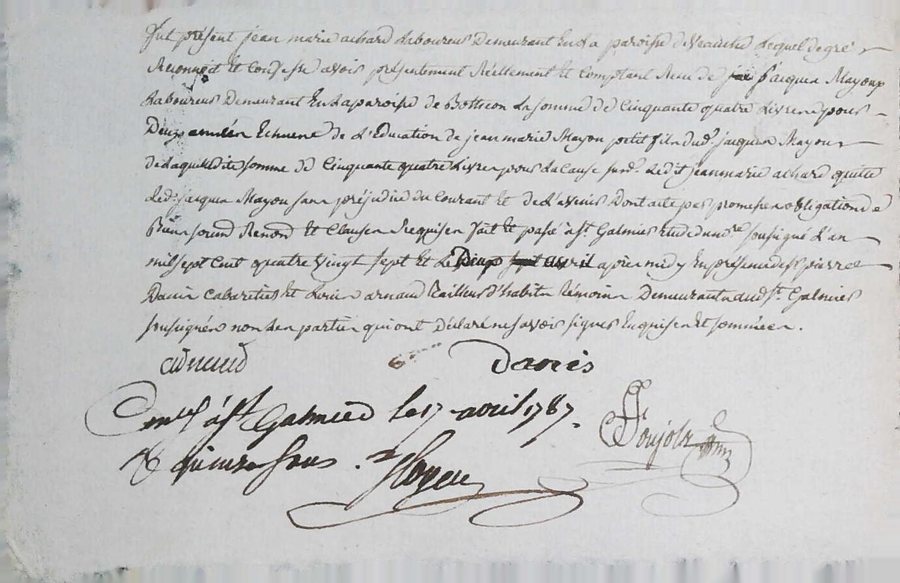 fut présent jean marie achard Laboureur Demeurant En La paroisse de Veauche Lequel de gré
Reconnoit et Confesse avoir présentement Réellement et Comptant Receu de jacques Mayoux
Laboureur Demeurant En La paroisse de Bothéon La somme de Cinquante quatre Livres pour
Deux années Echues de L'Education de jean marie Mayou petit fils dud. jacques Mayou
de Laquelle ditte somme de Cinquante quatre Livres pour La Cause susd. Ledit jean marie achard quitte
Led. jacques Mayou sans préjudice du Courant et de L'avenir Dont acte par promesses obligation de
Biens soumis Renond et Clauses Requises fait et passé à St. Galmier Etude du nre. soussigné L'an
mil sept Cent quatre Vingt sept et Le Deux avril après midy En présence de Sr. pierre
Danis Cabaretier et arnaud Tailleur d'habits Témoins Demeurant aud. St. Galmier
soussignés non Les parties qui ont Déclaré ne savoir signer Enquises et sommées.
arnaud Danis
à St Galmier le 17 avril 1787.
R quinze sous